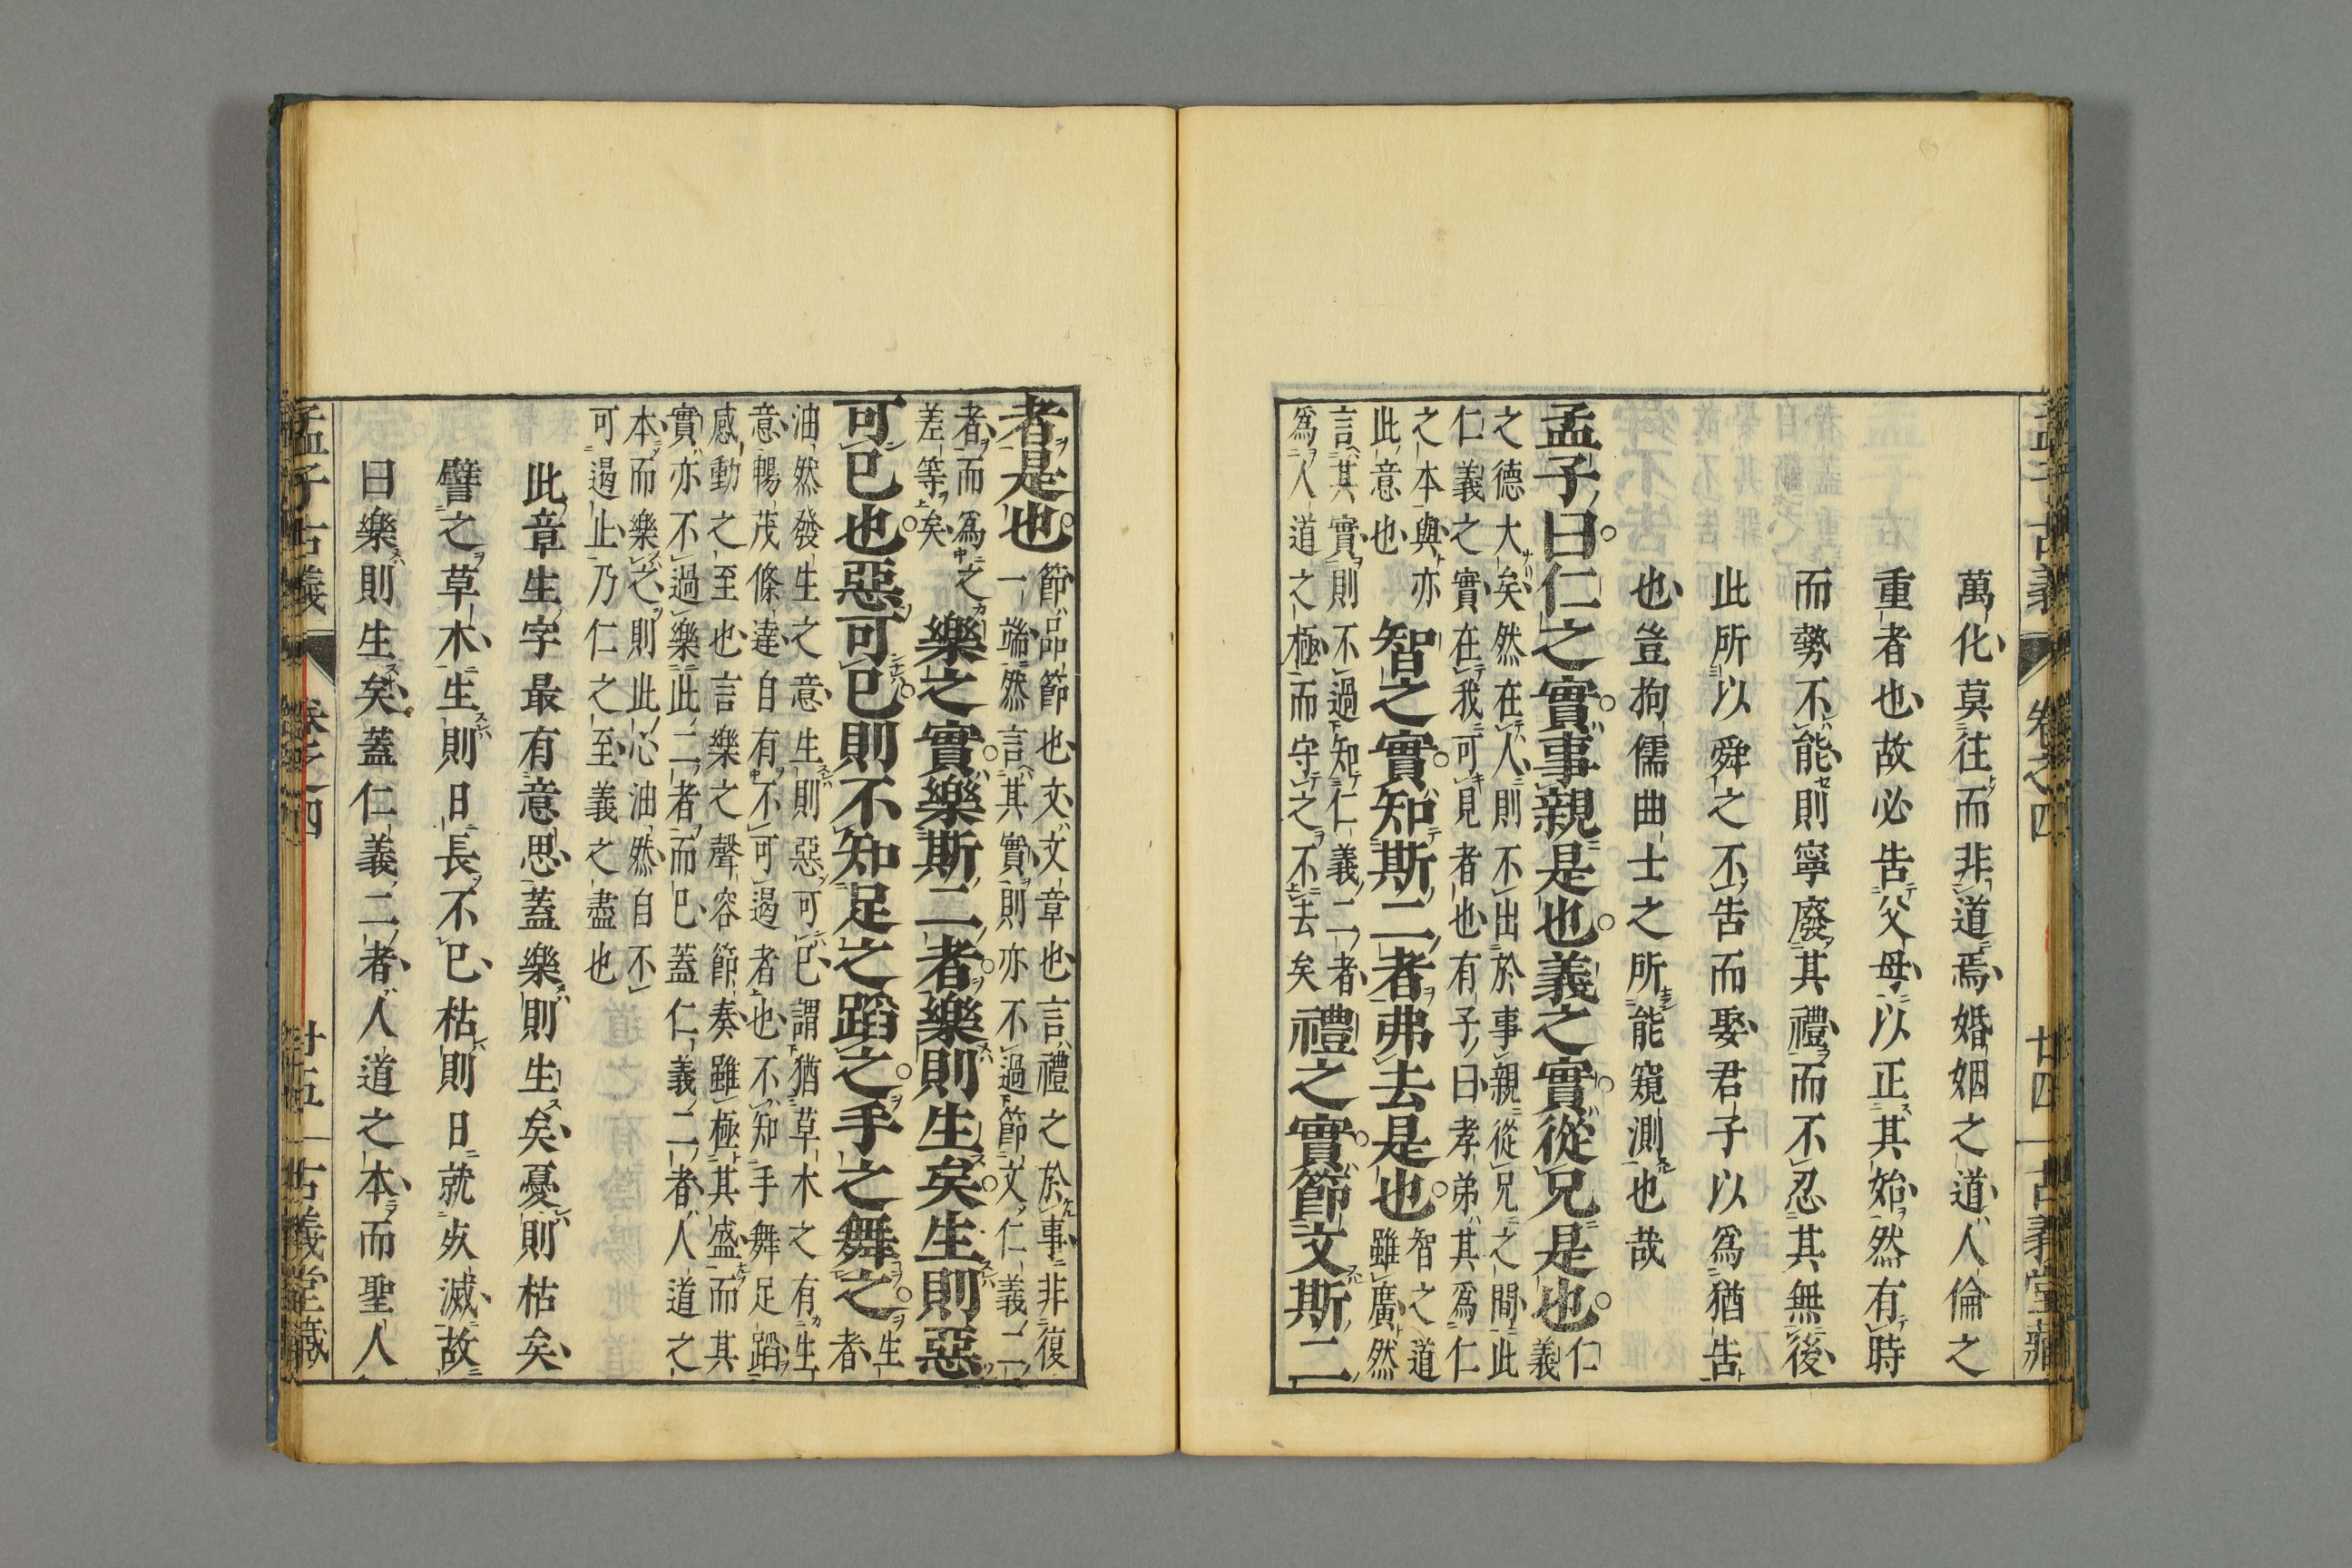 孟子古義 卷之四 廿四 古義堂藏
萬化莫往而非道焉婚姻之道人倫之
重者也故必告父母以正其始然有時
而勢不能則寧廢其禮而不忍其無後
此所以舜之不告而娶君子以爲猶告
也豈拘儒曲士之所能窺測也哉
孟子曰仁之實事親是也義之實從兄是也仁義
之德大矣然在人則不出於事親從兄之間此
仁義之實在我可見者也有子曰孝弟其爲仁
之本與亦
此意也
智之實知斯二者弗去是也
智之道
雖廣然
言其實則不過知仁義二者
爲人道之極而守之不去矣
禮之實節文斯二
者是也
節品節也文文章也言禮之於事非復
一端然言其實則亦不過節文仁義二
者而爲之
差等矣
樂之實樂斯二者樂則生矣生則惡
可已也惡可已則不知足之蹈之手之舞之
生
者
油然發生之意生則惡可已謂猶草木之有生
意暢茂條達自有不可遏者也不知手舞足蹈
感動之至也言樂之聲容節奏雖極其盛而其
實亦不過樂此二者而已蓋仁義二者人道之
本而樂之則此心油然自不
可遏止乃仁之至義之盡也
此章生字最有意思蓋樂則生矣憂則枯矣
譬之草木生則日長不已枯則日就灰滅故
曰樂則生矣蓋仁義二者人道之本而聖人
孟子古義 卷之四 廿五 古義堂藏